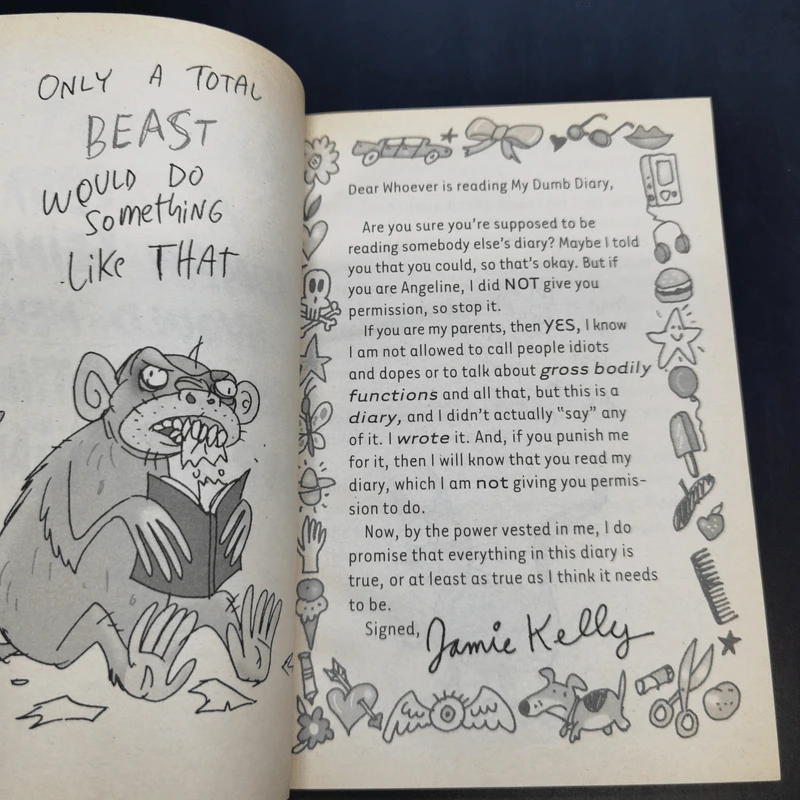 ONLY A TOTAL
BEAST
WOULD DO
SomethiNG
Like THAT
Dear Whoever is reading My Dumb Diary,
Are you sure you're supposed to be
reading somebody else's diary? Maybe I told
you that you could, so that's okay. But if
you are Angeline, I did NOT give you
permission, so stop it.
If you are my parents, then YES, I know
I am not allowed to call people idiots
and dopes or to talk about gross bodily
functions and all that, but this is a
diary, and I didn't actually "say" any
of it. I wrote it. And, if you punish me
for it, then I will know that you read my
diary, which I am not giving you permis-
sion to do.
Now, by the power vested in me, I do
promise that everything in this diary is
true, or at least as true as I think it needs
to be.
Signed, Jamie Kelly